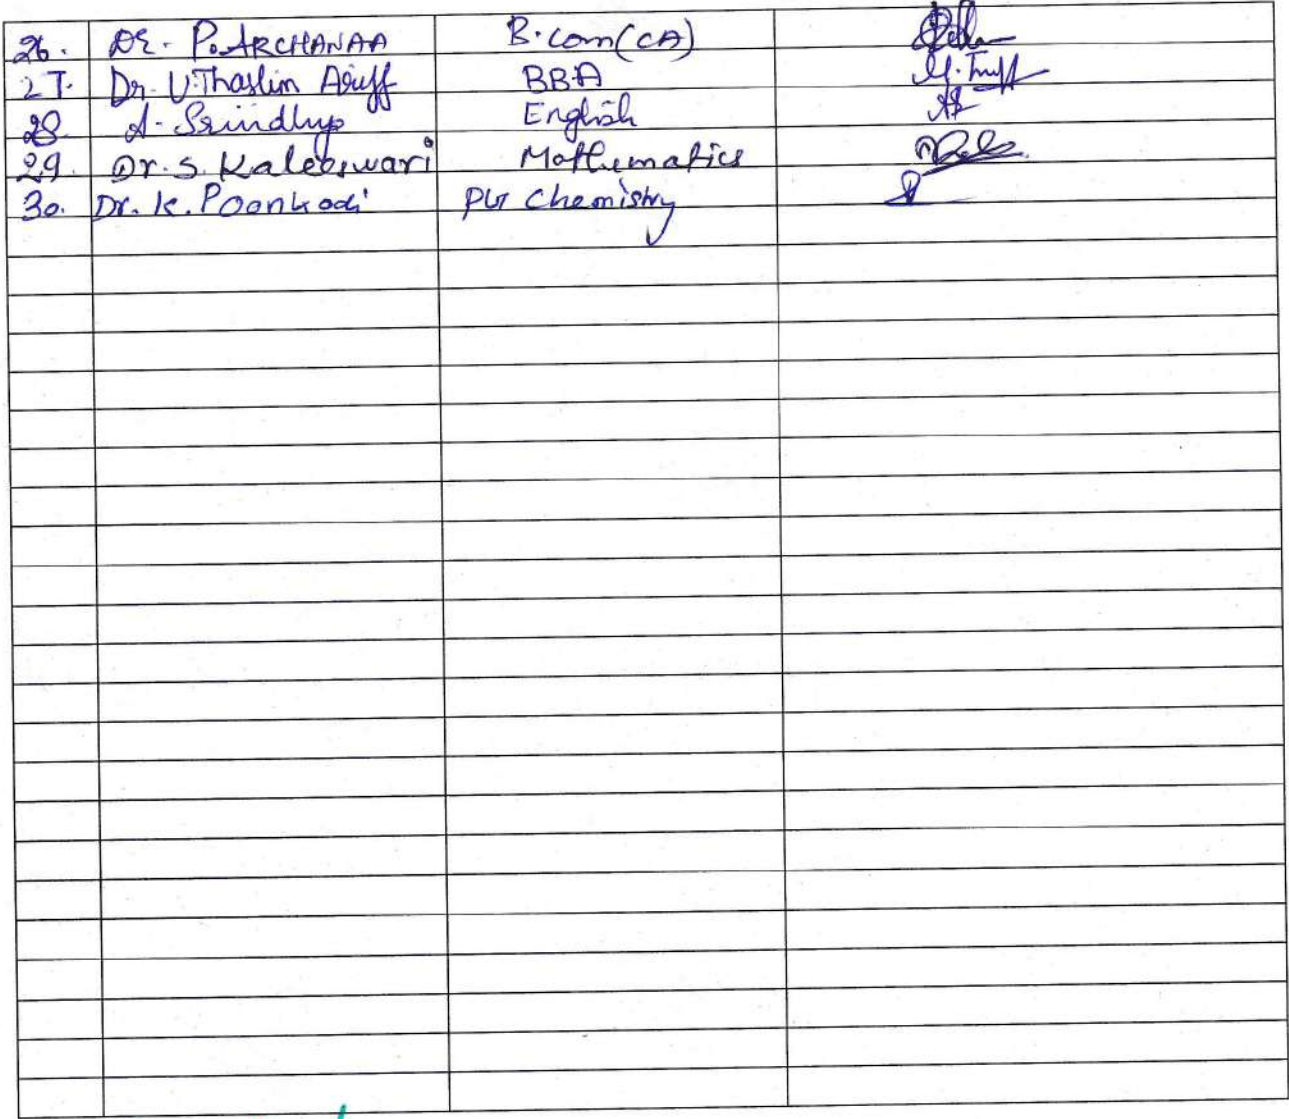 26. Dr. P. ARCHANAA B.Com(CA)
27. Dr. U. Thaslim Ariff BBA
28. A. Srindhya English
29. Dr. S. Kaleeswari Mathematics
30. Dr. K. Poonkodi PG Chemistry